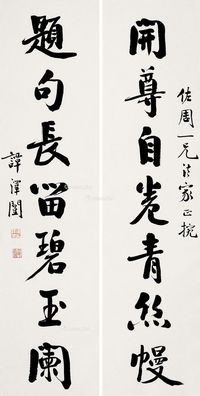 開尊自卷青絲幔
佐周一兄法家正捥
題句長留碧玉闌
譚澤闓